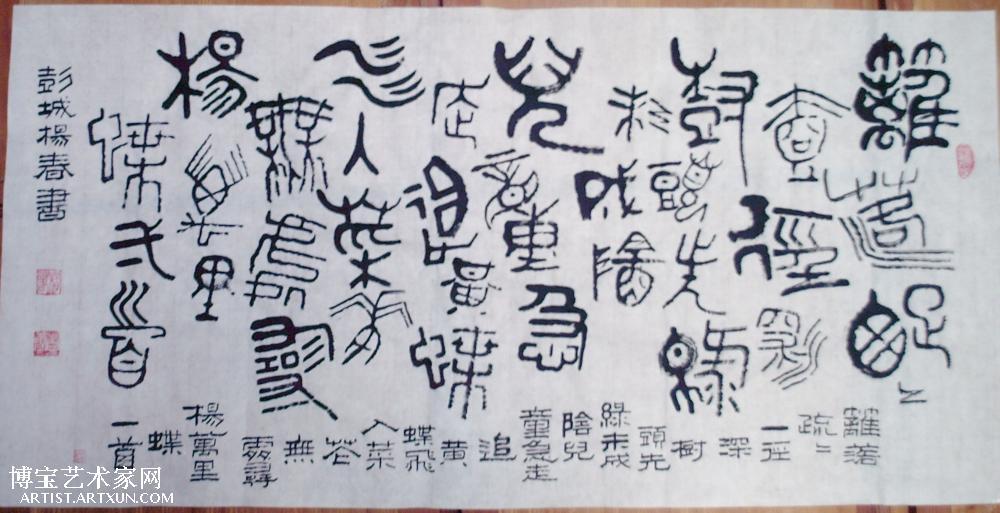 籬落疏〻
壹徑深
樹頭先綠
未成陰
兒童急
走追黃蝶
飛入菜花
無處尋
楊萬里
蝶弌首
彭城楊春書
籬落
疏〻
一徑
深
樹
頭先
綠未成
陰兒
童急走
追
黃
蝶飛
入菜
花
無
處尋
楊萬里
蝶
一首
博宝艺术家网
ARTIST.ARTXUN.COM